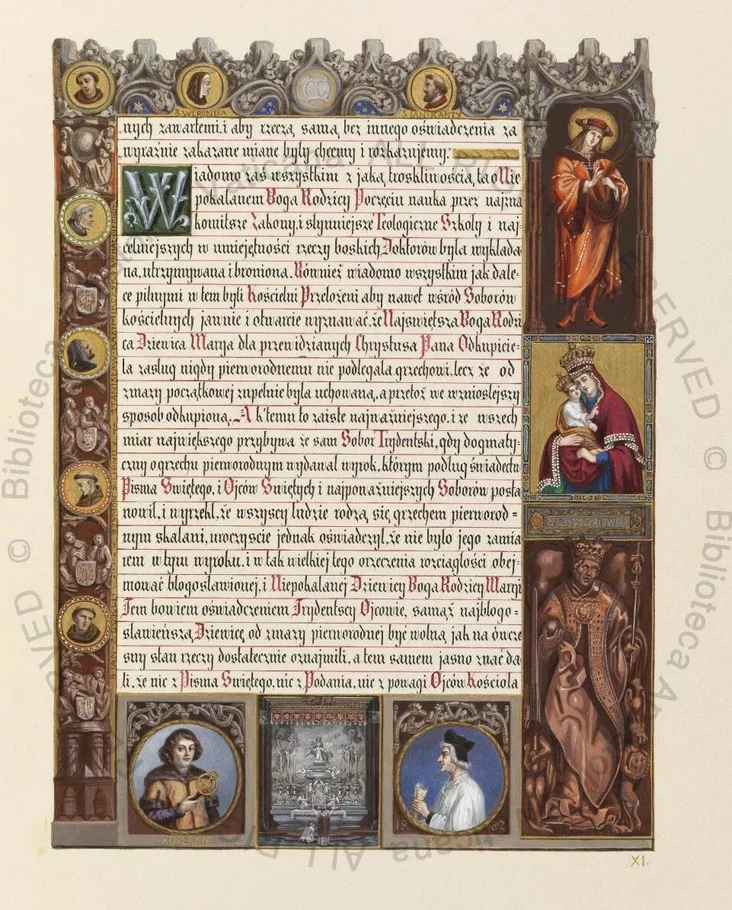 S. WERONIKA
S. JAN. KANTY
nych zawartemi, i aby rzeczą samą, bez innego oświadczenia za
wyraźnie zakazane miane były chcemy i rozkazujemy.
Wiadomo zaś wszystkim z jaką troskliwością, ta o Nie
pokalanem Boga Rodzicy Poczęciu nauka przez najzna
komitsze Zakony, i słynniejsze Teologiczne Szkoły i naj-
celniejszych w umiejętności rzeczy boskich Doktorów była wykłada
na, utrzymywana i broniona. Również wiadomo wszystkim jak dale-
ce pilnymi w tem byli Kościelni Przełożeni aby nawet wśród Soborów
kościelnych jawnie i otwarcie wyznawać, że Najświętsza Boga Rodzi
ca Dziewica Marya dla przewidzianych Chrystusa Pana Odkupicie-
la zasług nigdy pierworodnemu nie podlegała grzechowi, lecz że od
zmazy początkowej zupełnie była uchowaną, a przetoż we wznioślejszy
sposób odkupioną. A k'temu to zaiste najważniejszego, i ze wszech
miar największego przybywa że sam Sobór Trydentski, gdy dogmaty-
czny o grzechu pierworodnym wydawał wyrok, którym podług świadectw
Pisma Świętego, i Ojców Świętych i najpoważniejszych Soborów posta
nowił, i wyrzekł, że wszyscy ludzie rodzą się grzechem pierworod-
nym skalani, uroczyście jednak oświadczył, że nie było jego zamia
rem w tym wyroku, i w tak wielkiej tego orzeczenia rozciągłości obej-
mować błogosławionej, i Niepokalanej Dziewicy Boga Rodzicy Maryi
Tem bowiem oświadczeniem Trydentscy Ojcowie, samąż najbłogo-
sławieńszą Dziewicę od zmazy pierworodnej być wolną jak na ówcze
sny stan rzeczy dostatecznie oznajmili, a tem samem jasno znać da
li, że nic z Pisma Świętego, nic z Podania, nic z powagi Ojców Kościoła
KOPERNIK
18 62
XI.
© Biblioteca Apostolica Vaticana ALL RIGHTS RESERVED